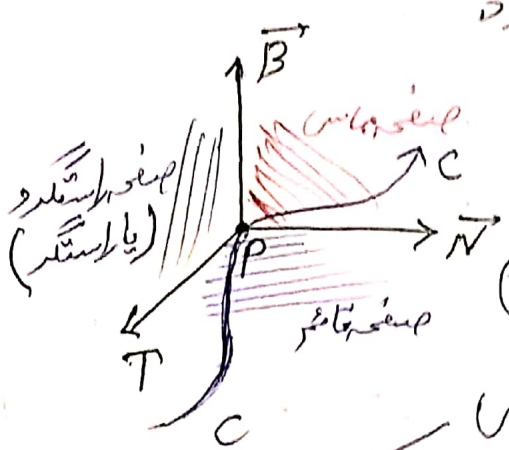 B
صفحه مماس
C
صفحه راستگرد
(یا راستگر)
P
N
صفحه قائم
T
C